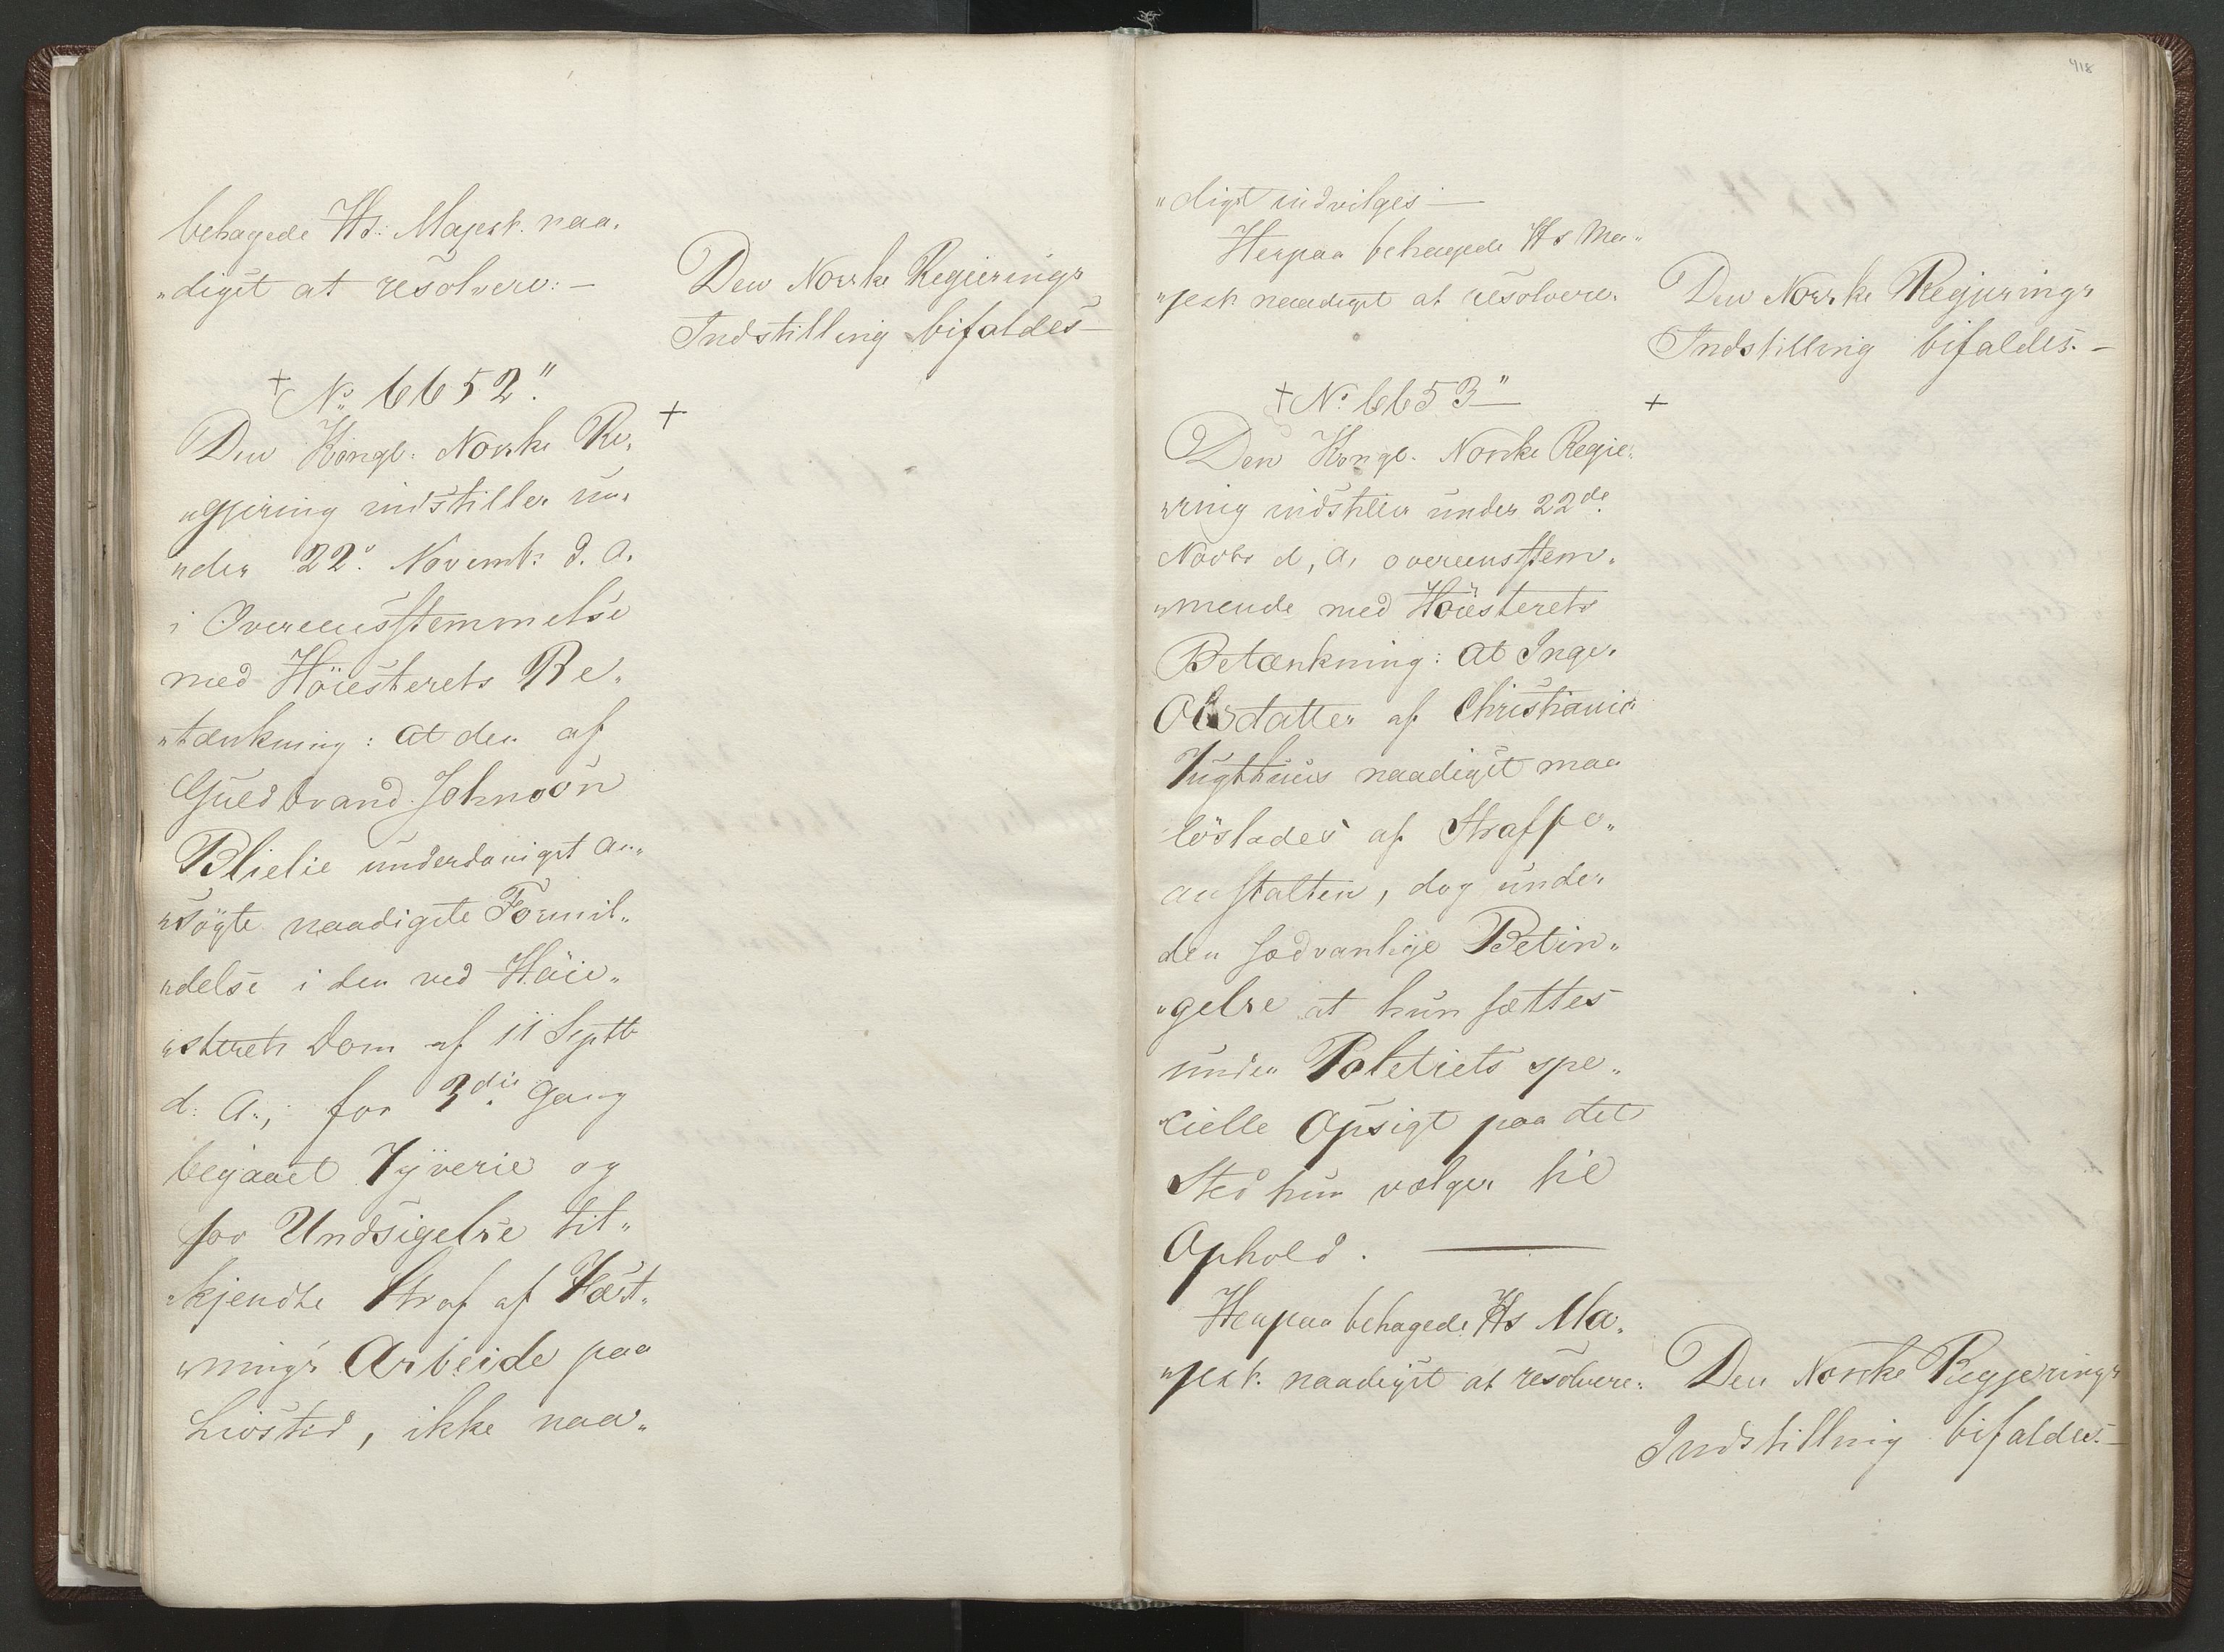 behagede Hs: Majest. naa„
„digst at resolvere: —
Den Norske Regierings
Indstilling bifaldes —
+ No 6652."
+
Den Kongl: Norske Re„
„gjering indstiller un„
„der 22de Novembr d. A.
i Overeensstemmelse
med Höiesterets Be„
„tænkning: at den af
Guldbrand Johnsön
Blielie underdanigst an„
„søgte naadigste Formil„
„delse i den ved Høie„
„sterets Dom af 11 Septbr
d: A:, for 3die Gang
begaaet Tyverie og
for Undsigelse til„
„kjendte Straf af Fæst„
„nings Arbeide paa
Livstid, ikke naa„
418
„digst indvilges —
Herpaa behagede Hs Ma„
„jest. naadigst at resolvere:
Den Norske Regjerings
Indstilling bifaldes. —
+ No 6653" —
+
Den Kongl. Norske Regie„
„ring indstiller under 22de
Novbr d, A, overeensstem„
„mende med Höiesterets
Betænkning: at Inger
Olsdatter af Christiania
Tugthuus naadigst maa
löslades af Straffe„
anstalten, dog under
den sædvanlige Betin„
„gelse at hun sættes
under Politiets spe„
„cielle Opsigt paa det
Sted hun vælger til
Ophold. —
Herpaa behagede Hs Ma„
„jest. naadigst at resolvere:
Den Norske Regjerings
Indstilling bifaldes. —